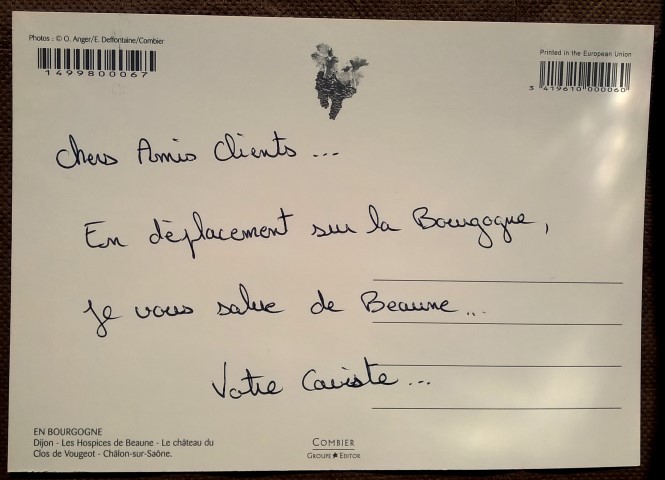 Photos : © O. Anger/E. Deffontaine/Combier
1499800067
Printed in the European Union
3 419610 000060
Chers Amis Clients ...
En déplacement sur la Bourgogne,
Je vous salue de Beaune...
Votre Caviste...
EN BOURGOGNE
Dijon - Les Hospices de Beaune - Le château du
Clos de Vougeot - Châlon-sur-Saône.
COMBIER
GROUPE ★ EDITOR